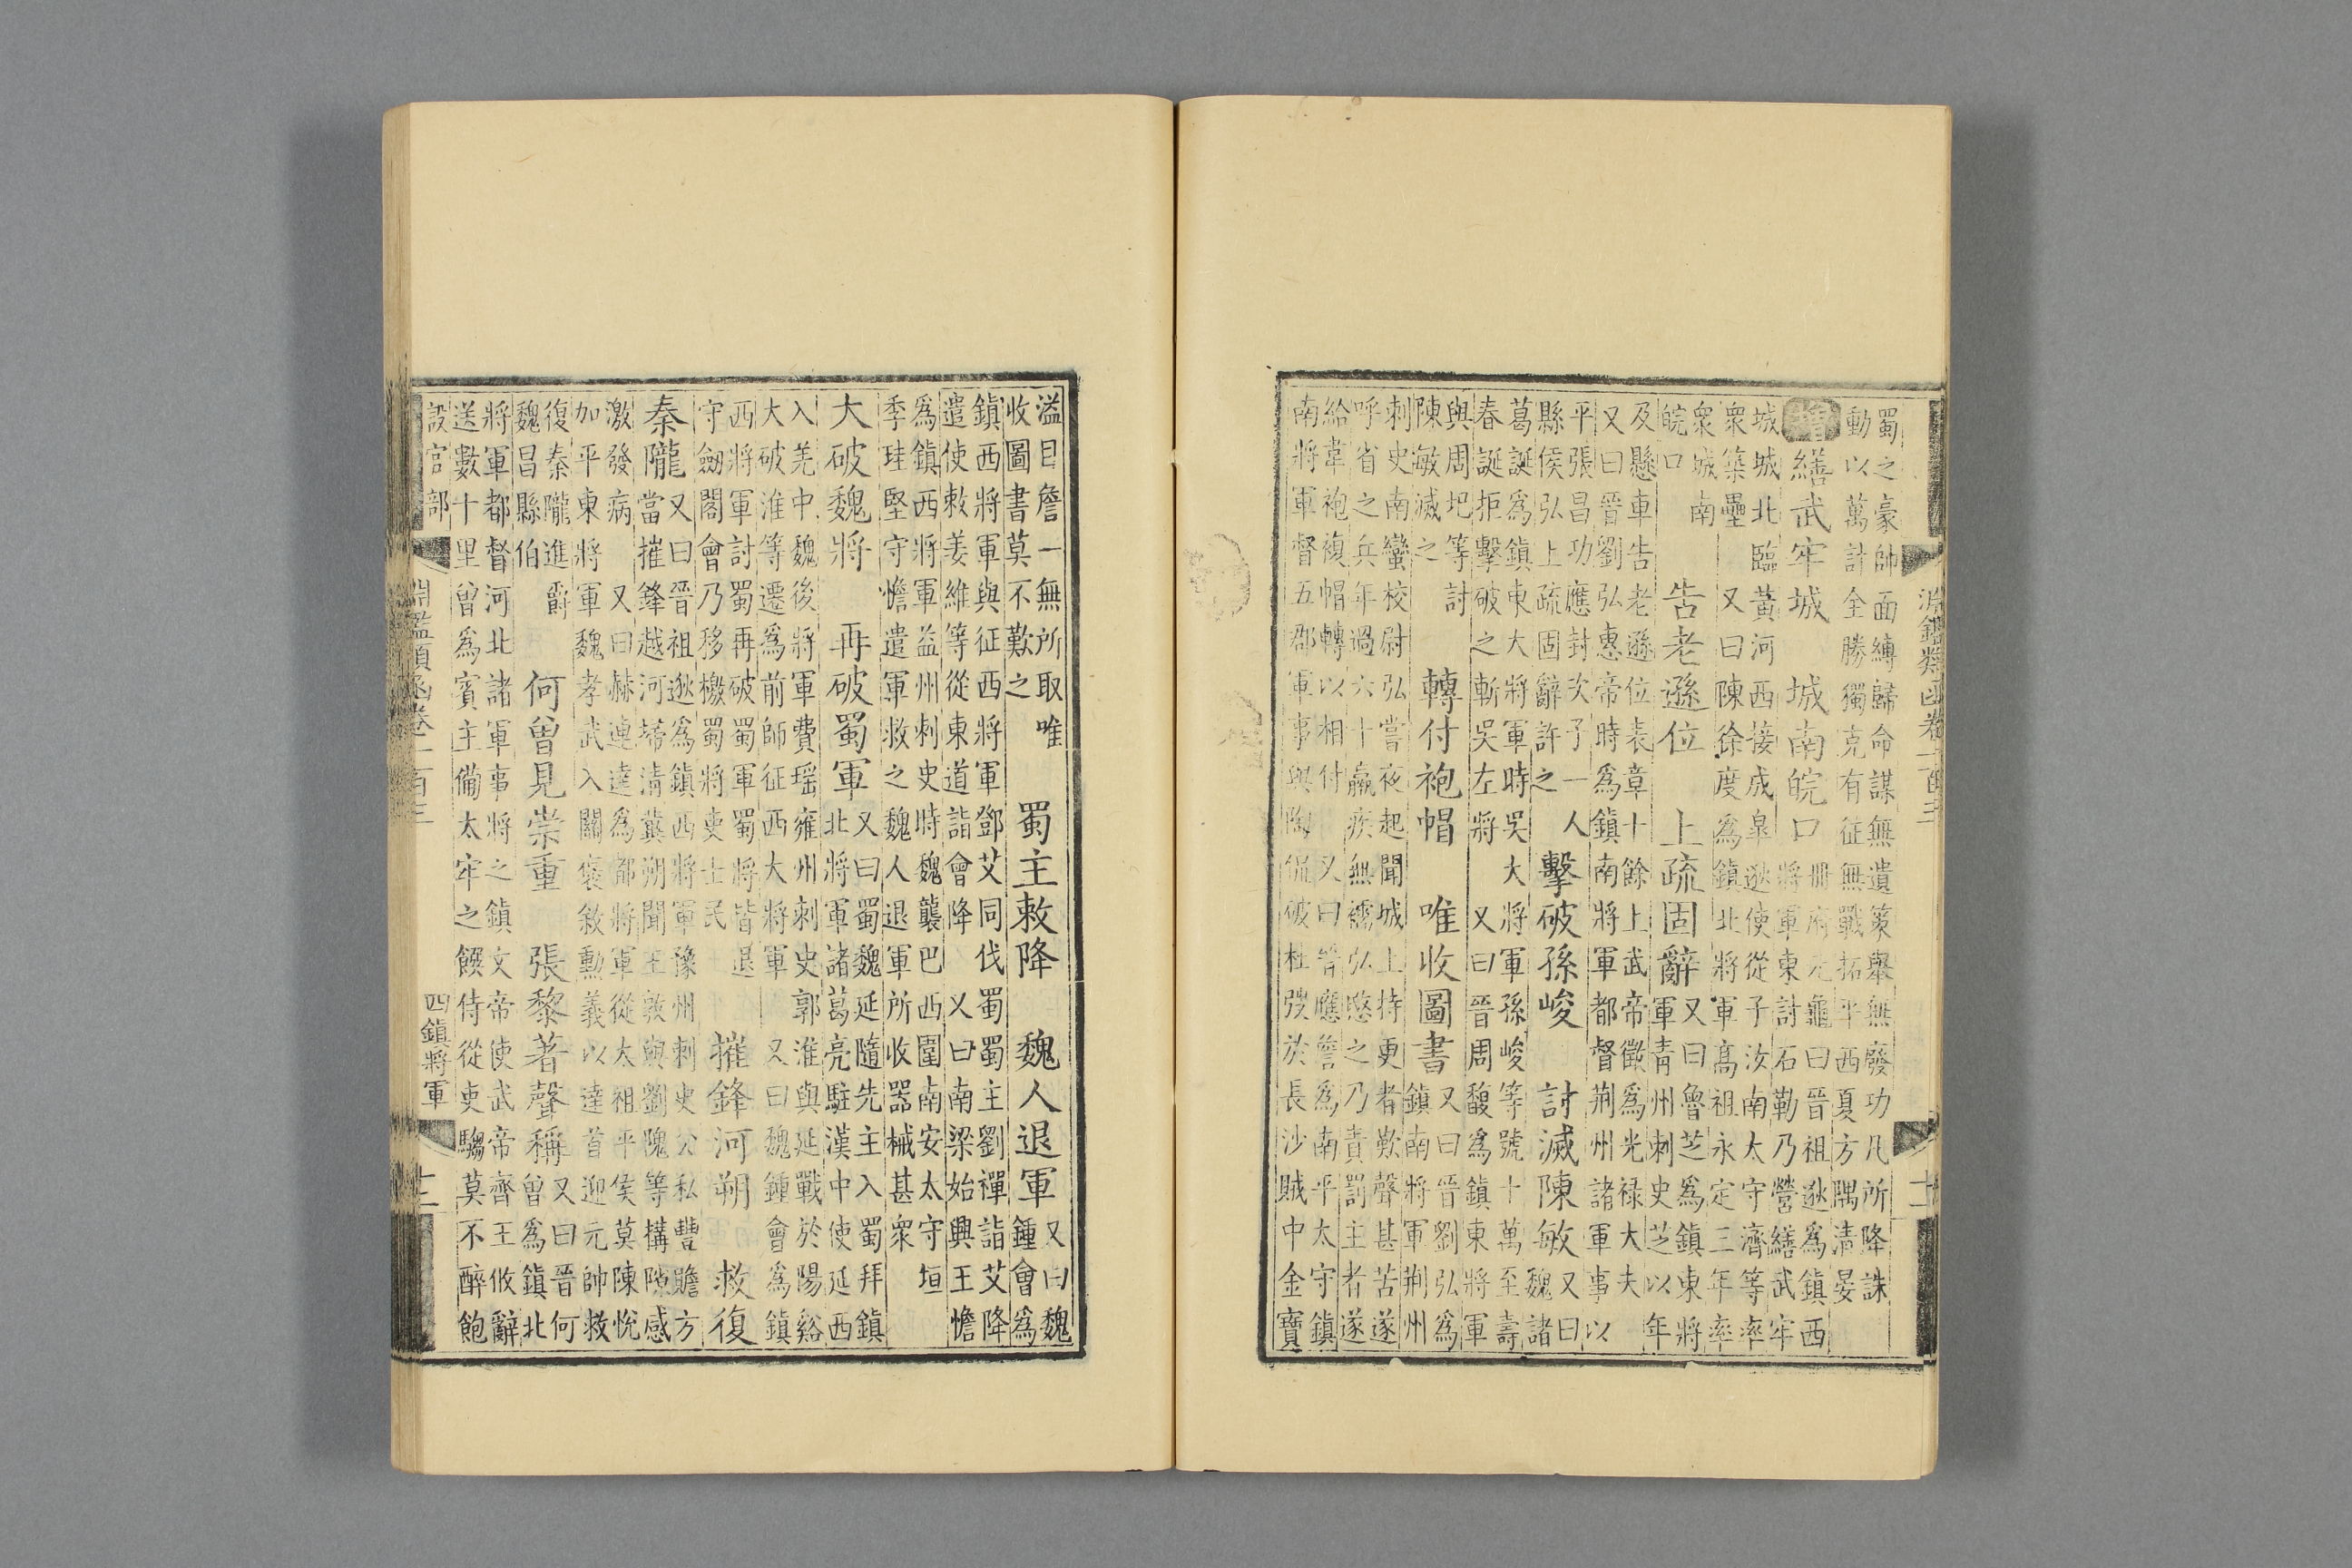 淵鑑類函卷一百三 十一
蜀之豪帥面縛歸命謀無遺策舉無廢功凡所降誅
動以萬計全勝獨克有征無戰拓平西夏方隅清晏
增 繕武牢城 城南皖口
冊府元龜曰晉祖逖爲鎮西
將軍東討石勒乃營繕武牢
城城北臨黃河西接成臯逖使從子汝南太守濟等率
衆築壘 又曰陳徐度爲鎮北將軍高祖永定三年率
衆城南
皖口
告老遜位 上疏固辭
又曰魯芝爲鎮東將
軍青州刺史芝以年
及懸車告老遜位表章十餘上武帝徵爲光祿大夫
又曰晉劉弘惠帝時爲鎮南將軍都督荆州諸軍事以
平張昌功應封次子一人
縣侯弘上疏固辭許之
擊破孫峻 討滅陳敏
又曰
魏諸
葛誕爲鎮東大將軍時吳大將軍孫峻等號十萬至壽
春誕拒擊破之斬吳左將 又曰晉周馥爲鎮東將軍
與周玘等討
陳敏滅之
轉付袍帽 唯收圖書
又曰晉劉弘爲
鎮南將軍荆州
刺史南蠻校尉弘嘗夜起聞城上持更者歎聲甚苦遂
呼省之兵年過六十羸疾無襦弘愍之乃責罰主者遂
給韋袍複帽轉以相付 又曰晉應詹爲南平太守鎮
南將軍督五郡軍事與陶侃破杜弢於長沙賊中金寶
溢目詹一無所取唯
收圖書莫不歎之
蜀主敕降 魏人退軍
又曰魏
鍾會爲
鎮西將軍與征西將軍鄧艾同伐蜀蜀主劉禪詣艾降
遣使敕姜維等從東道詣會降 又曰南梁始興王憺
爲鎮西將軍益州刺史時魏襲巴西圍南安太守垣
季珪堅守憺遣軍救之魏人退軍所收器械甚衆
大破魏將 再破蜀軍
又曰蜀魏延隨先主入蜀拜鎮
北將軍諸葛亮駐漢中使延西
入羌中魏後將軍費瑶雍州刺史郭淮與延戰於陽谿
大破淮等遷爲前師征西大將軍 又曰魏鍾會爲鎮
西將軍討蜀再破蜀軍蜀將皆退
守劒閣會乃移檄蜀將吏士民
摧鋒河朔 救復
秦隴
又曰晉祖逖爲鎮西將軍豫州刺史公私豐贍方
當摧鋒越河埽清冀朔聞王敦與劉隗等構隙感
激發病 又曰赫連達爲都將軍從太祖平侯莫陳悅
加平東將軍魏孝武入關褒敘勲義以達首迎元帥救
復秦隴進爵
魏昌縣伯
何曾見崇重 張黎著聲稱
又曰晉何
曾爲鎮北
將軍都督河北諸軍事將之鎮文帝使武帝齊王攸辭
送數十里曾爲賓主備太牢之饌侍從吏騶莫不醉飽
設官部 淵鑑類函卷一百三 四鎮將軍 十二